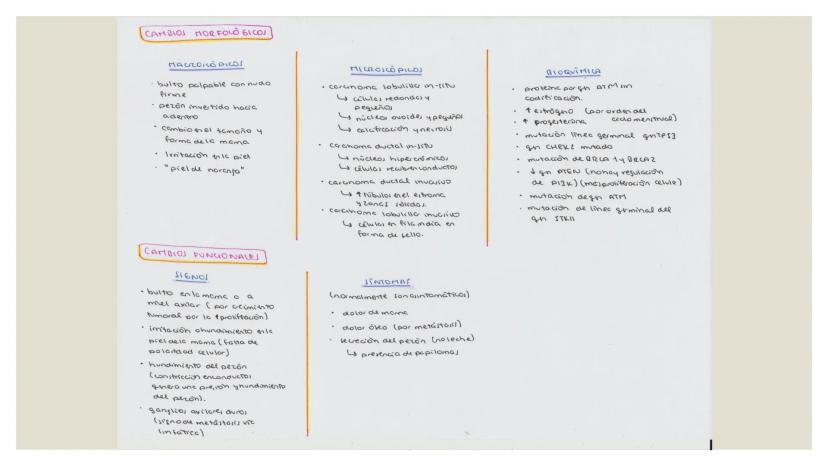 CAMBIOS MORFOLÓGICOS
MACROSCÓPICOS
· bulto palpable con nudo
firme
· pezón invertido hacia
adentro
· cambio en el tamaño y
forma de la mama
· Irritación en la piel
· "piel de naranja"
MICROSCÓPICOS
· carcinoma lobulillar in-situ
↳ células redondas y
pequeñas
↳ núcleos ovoides y pequeños
↳ calcificación y necrosis
· carcinoma ductal in-situ
↳ núcleos hipercrómicos
↳ células recubren conductos
· carcinoma ductal invasivo
↳ ↑ túbulos en el estroma
y zonas sólidas.
· carcinoma lobulillar invasivo
↳ células en fila india en
forma de sello.
BIOQUÍMICA
· proteína por gn ATM sin
codificación.
· ↑ estrógeno (por orden del
· ↑ progesterona ciclo menstrual)
· mutación línea germinal gn TP53
· gn CHEK2 mutado
· mutación de BRCA 1 y BRCA2
· ↓ gn PTEN (no hay regulación
de PI3K) (más proliferación celular)
· mutación de gn ATM
· mutación de línea germinal del
gn STK11
CAMBIOS FUNCIONALES
SIGNOS
· bulto en la mama o a
nivel axilar (por crecimiento
tumoral por la ↑ proliferación)
· irritación o hundimiento en la
piel de la mama (falta de
polaridad celular)
· hundimiento del pezón
(constricción en conductos
genera una presión y hundimiento
del pezón).
· ganglios axilares duros
(signo de metástasis vía
linfática)
SÍNTOMAS
(normalmente son asintomáticos)
· dolor de mama
· dolor óseo (por metástasis)
· secreción del pezón (no leche)
↳ presencia de papilomas